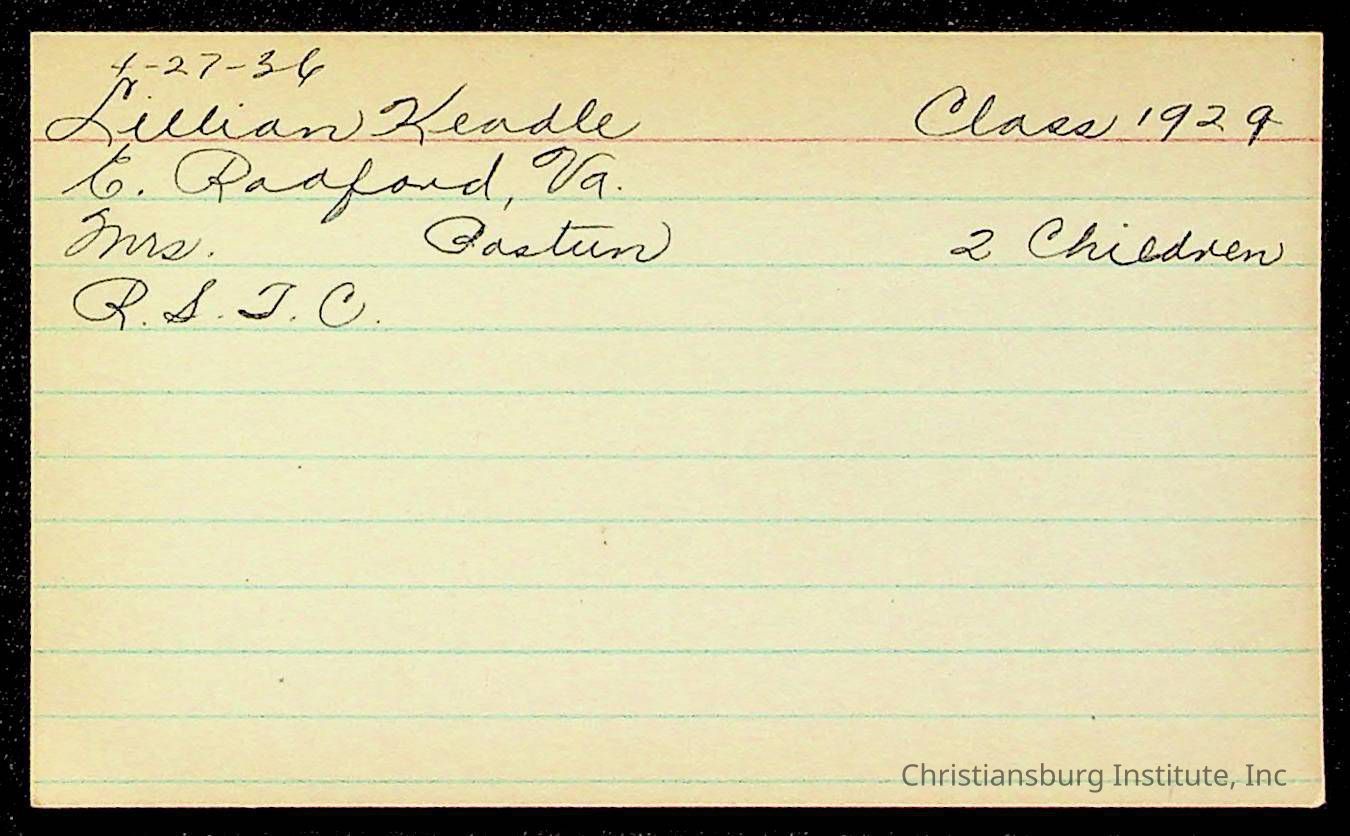 4-27-36
Lillian Keadle Class 1929
E. Radford, Va.
Mrs. 2 Children
R. S. T. C.
Christiansburg Institute, Inc